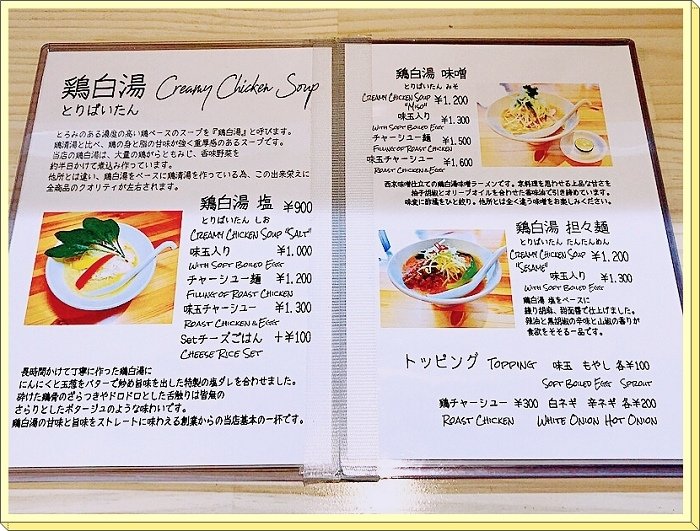 鶏白湯 Creamy Chicken Soup
とりぱいたん
とろみのある濃度の高い鶏ベースのスープを『鶏白湯』と呼びます。
鶏清湯と比べ、鶏の身と脂の甘味が強く重厚感のあるスープです。
当店の鶏白湯は、大量の鶏がらともみじ、香味野菜を
約半日かけて煮込み作っています。
他所とは違い、鶏白湯をベースに鶏清湯を作っている為、この出来栄えに
全商品のクオリティが左右されます。
鶏白湯 塩 ¥900
とりぱいたん しお
Creamy Chicken Soup "Salt"
味玉入り ¥1.000
With Soft Boiled Egg
チャーシュー麺 ¥1.200
Filling of Roast Chicken
味玉チャーシュー ¥1.300
Roast Chicken & Egg
Setチーズごはん +¥100
Cheese Rice Set
長時間かけて丁寧に作った鶏白湯に
にんにくと玉葱をバターで炒め旨味を出した特製の塩ダレを合わせました。
砕けた鶏骨のざらつきやドロドロとした舌触りは皆無の
さらりとしたポタージュのような味わいです。
鶏白湯の甘味と旨味をストレートに味わえる創業からの当店基本の一杯です。
鶏白湯 味噌
とりぱいたん みそ
Creamy Chicken Soup ¥1.200
"Miso"
味玉入り ¥1.300
With Soft Boiled Egg
チャーシュー麺 ¥1.500
Filling of Roast Chicken
味玉チャーシュー ¥1,600
Roast Chicken & Egg
西京味噌仕立ての鶏白湯味噌ラーメンです。京料理を思わせる上品な甘さを
柚子胡椒とオリーブオイルを合わせた薬味油で引き締めています。
味変に酢橘をひと絞り。他所とは全く違う味噌をお楽しみください。
鶏白湯 担々麺
とりぱいたん たんたんめん
Creamy Chicken Soup ¥1.200
"Sesame"
味玉入り ¥1.300
With Soft Boiled Egg
鶏白湯 塩をベースに
練り胡麻、甜面醤で仕上げました。
辣油と黒胡椒の辛味と山椒の香りが
食欲をそそる一品です。
トッピング Topping 味玉 もやし 各¥100
Soft Boiled Egg Sprout
鶏チャーシュー ¥300 白ネギ 辛ネギ 各¥200
Roast Chicken White Onion Hot Onion